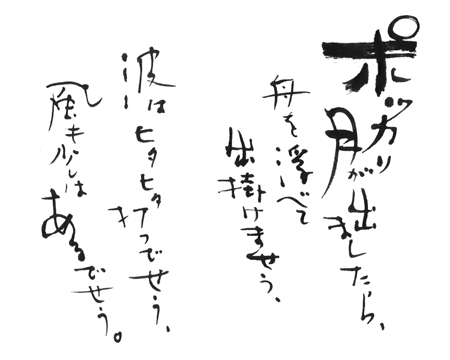 ポッカリ月が出ましたら、
舟を浮べて出掛けませう、
波はヒタヒタ打つでせう、
風も少しはあるでせう。